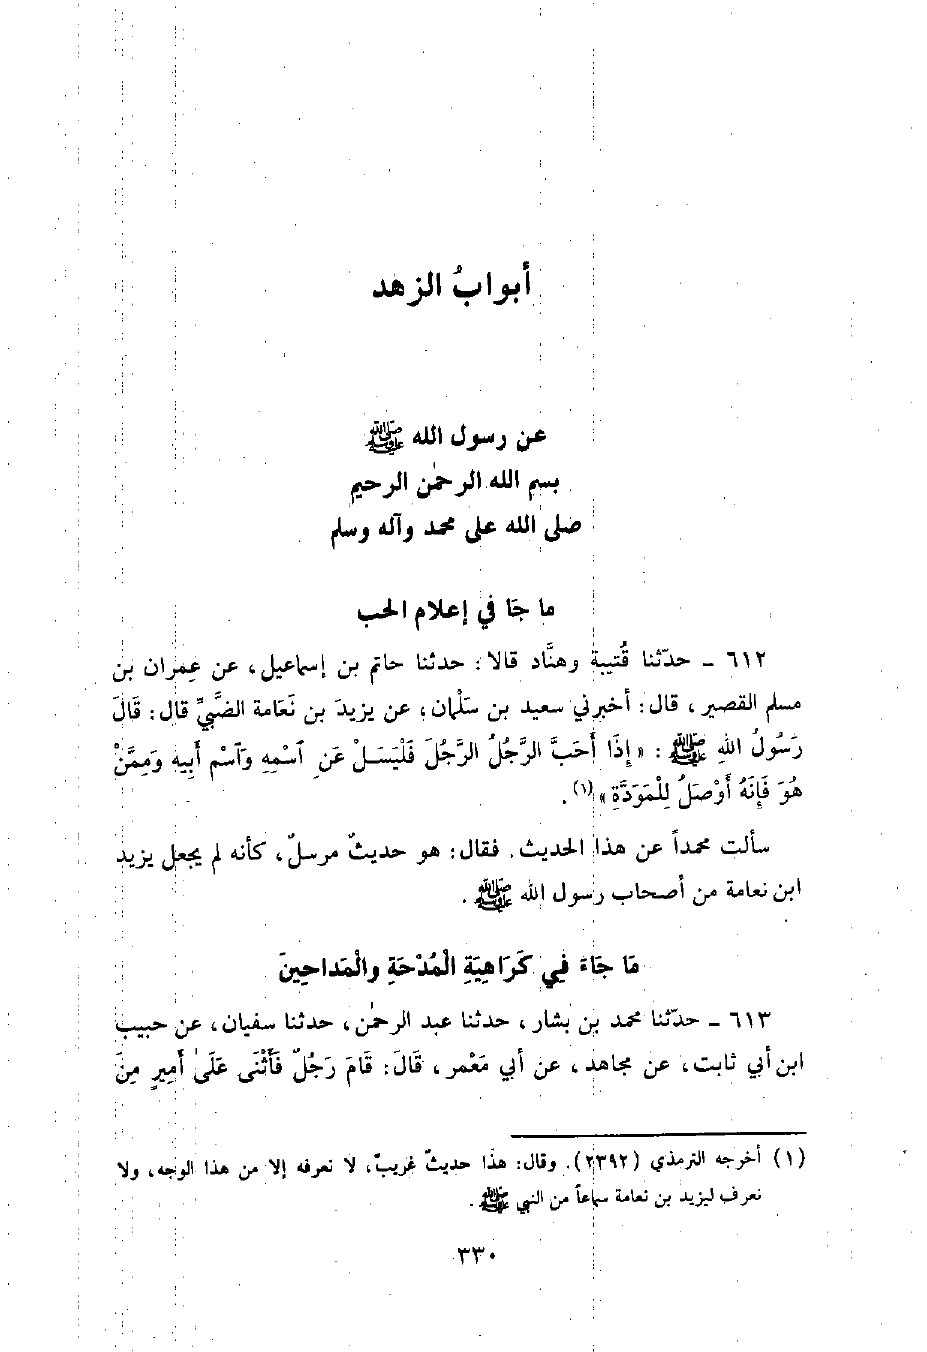 أبوابُ الزهد
عن رسول الله ﷺ
بسم الله الرحمٰن الرحيم
صلى الله على محمد وآله وسلم
ما جَا في إعلام الحب
٦١٢ - حدّثنا قُتيبة وهنَّاد قالا: حدثنا حاتم بن إسماعيل، عن عِمران بن
مسلم القصير، قال: أخبرني سعيد بن سَلْمان، عن يزيدَ بن نَعَامة الضَّبيِّ قال: قَالَ
رَسُولُ اللهِ ﷺ: «إِذَا أَحَبَّ الرَّجُلُ الرَّجُلَ فَلْيَسَلْ عَنِ ٱسْمِهِ وَٱسْمِ أَبِيهِ وَمِمَّنْ
هُوَ فَإِنَهُ أَوْصَلُ لِلْمَوَدَّةِ»(١).
سألت محمداً عن هذا الحديث. فقال: هو حديثٌ مرسلٌ، كأنه لم يجعل يزيد
ابن نعامة من أصحاب رسول الله ﷺ.
مَا جَاءَ فِي كَرَاهِيَةِ الْمُدْحَةِ والْمَداحِينَ
٦١٣ - حدّثنا محمد بن بشار، حدثنا عبد الرحمٰن، حدثنا سفيان، عن حبيب
ابن أبي ثابت، عن مجاهد، عن أبي مَعْمر، قَالَ: قَامَ رَجُلٌ فَأَثْنَى عَلَىٰ أَمِيرٍ مِنَ
(١) أخرجه الترمذي (٢٣٩٢). وقال: هذا حديثٌ غريبٌ، لا نعرفه إلا من هذا الوجه، ولا
نعرف ليزيد بن نعامة سماعاً من النبي ﷺ.
٣٣٠